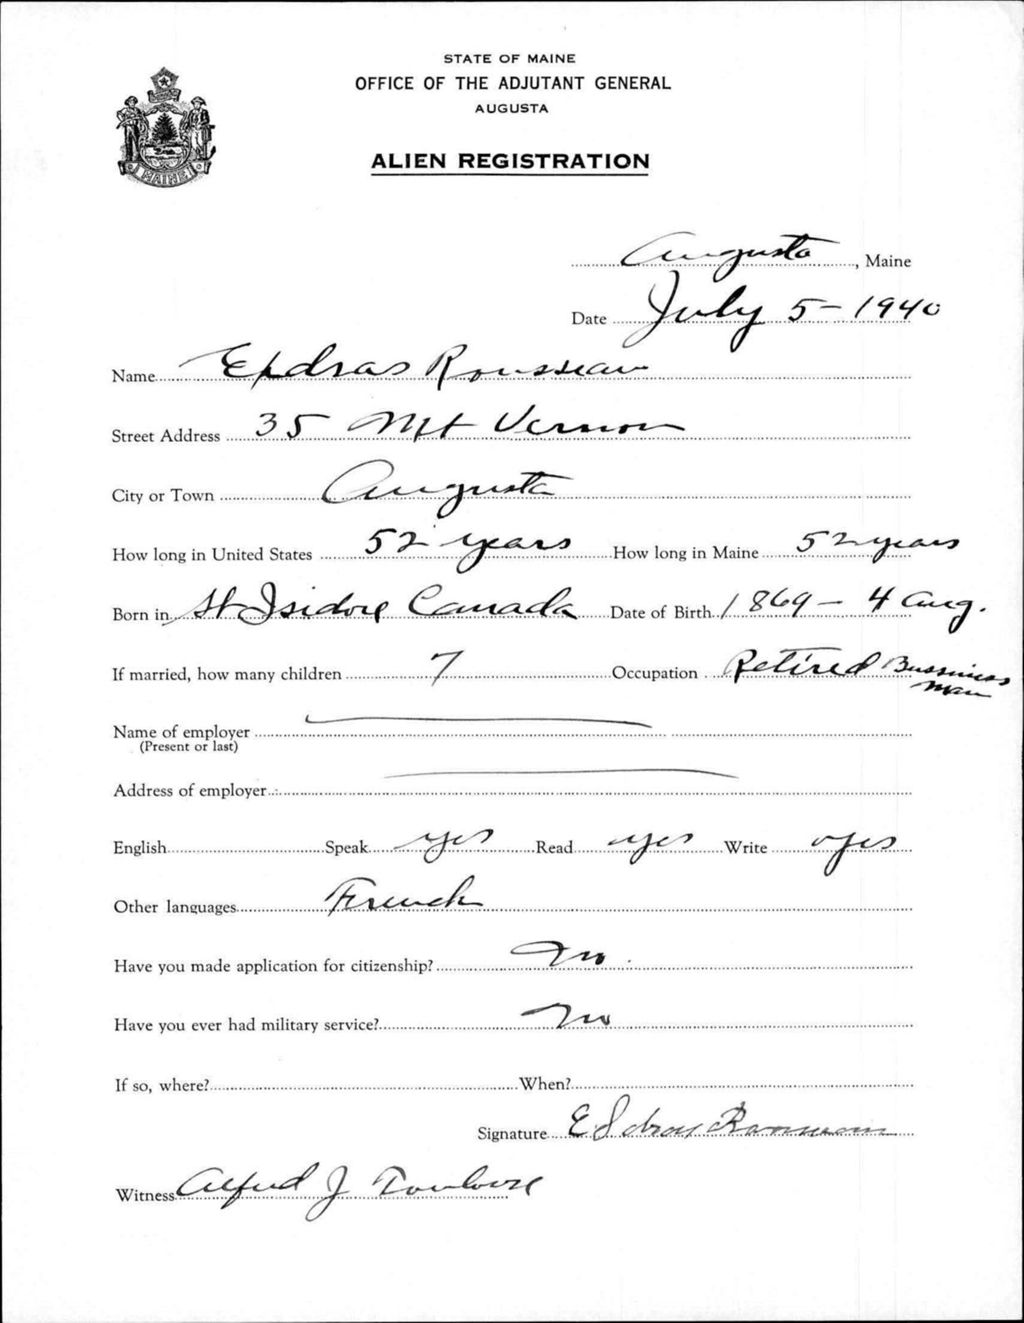 STATE OF MAINE
OFFICE OF THE ADJUTANT GENERAL
AUGUSTA
ALIEN REGISTRATION
MAINE
Augusta, Maine
Date July 5-1940
Name Esdras Rousseau
Street Address 35 Mt Vernon
City or Town Augusta
How long in United States 52 years How long in Maine 52 years
Born in St Isidore Canada Date of Birth 1869 - 4 Aug.
If married, how many children 7 Occupation Retired Bussiness man
Name of employer
(Present or last)
Address of employer
English Speak yes Read yes Write yes
Other languages French
Have you made application for citizenship? No
Have you ever had military service? No
If so, where? When?
Signature Esdras Rousseau
Witness Alfred J